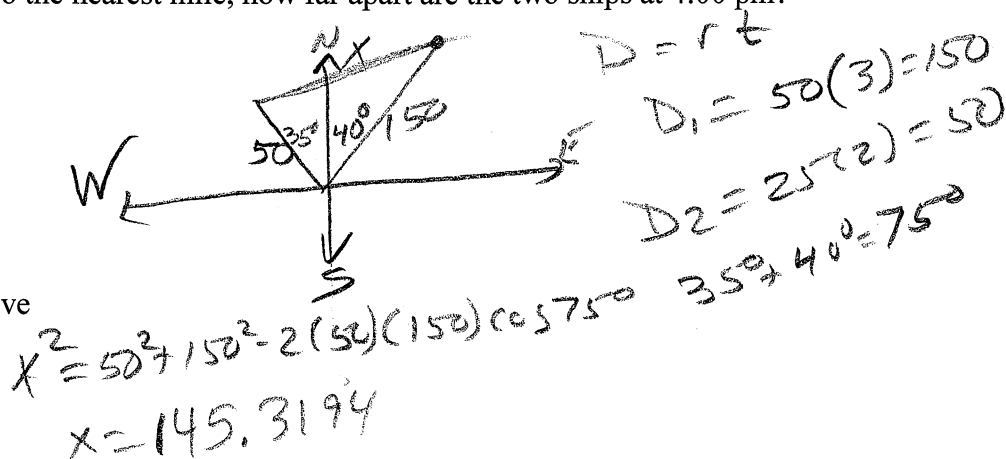 o the nearest mile, how far apart are the two ships at 4:00 pm?
N
X
D = r t
50 35° 40° 150
D₁ = 50(3)=150
W
E
D2 = 25(2) = 50
S
35°+40°=75°
ve
x²=50²+150²-2(50)(150)cos75°
x=145.3194